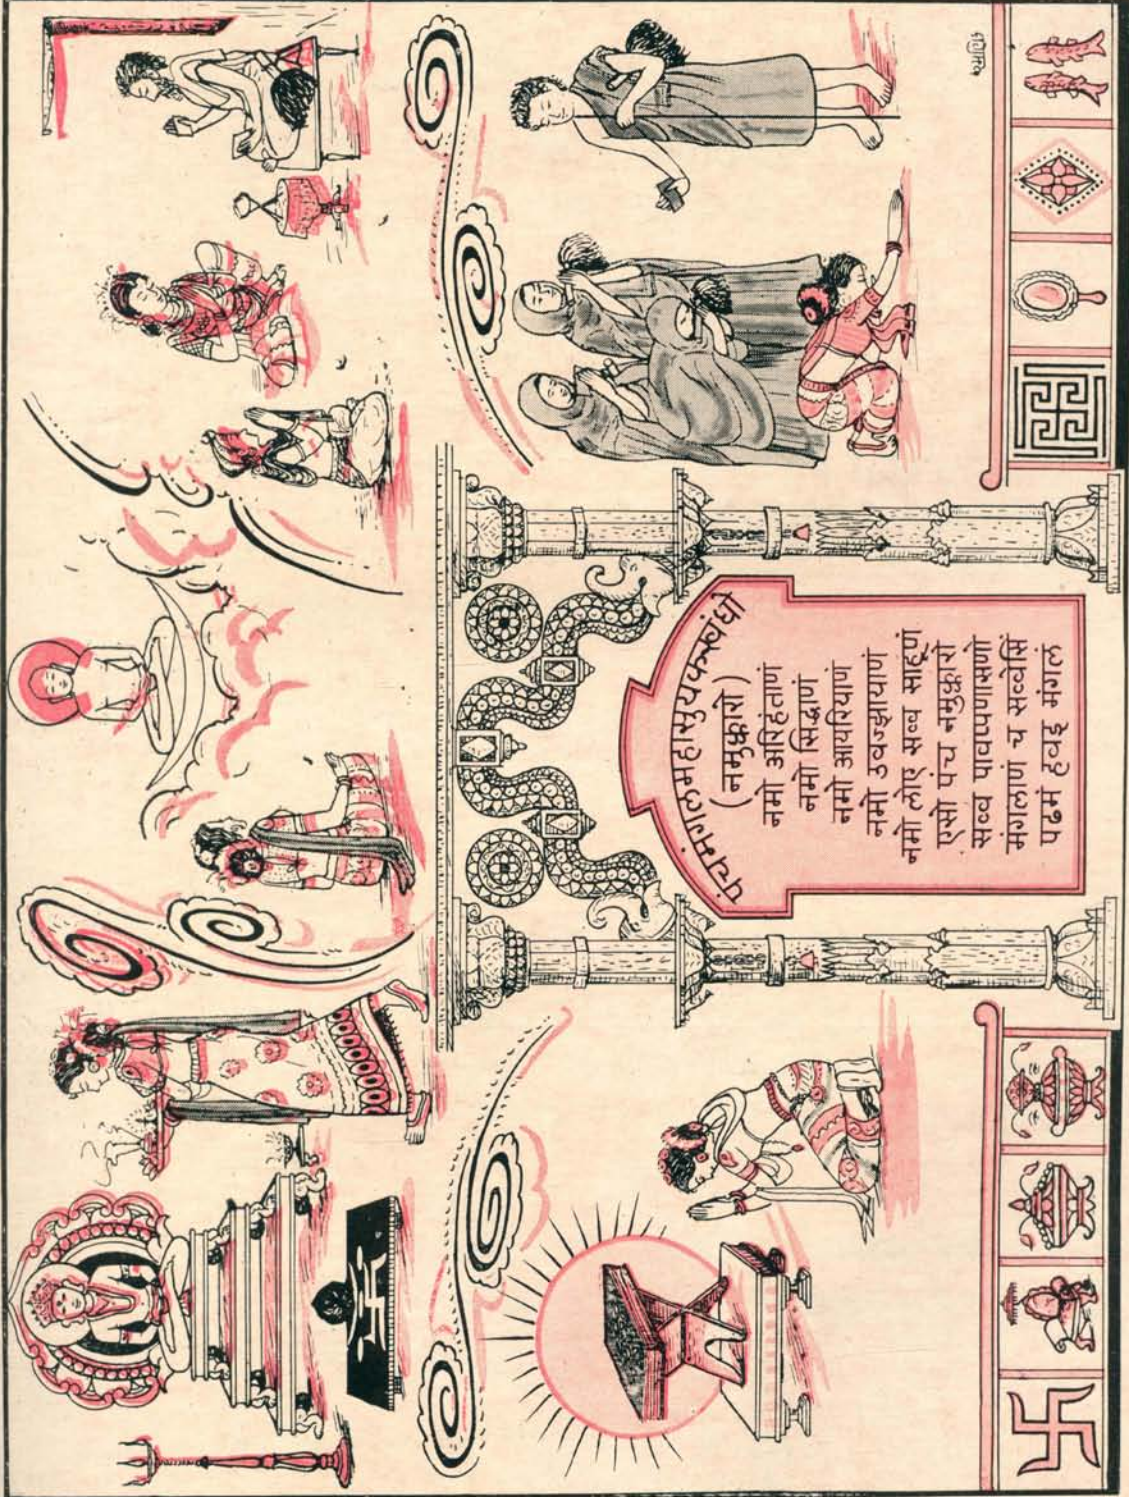 पंचमंगलमहासुयक्खंधो
(नमुक्कारो)
नमो अरिहंताणं
नमो सिद्धाणं
नमो आयरियाणं
नमो उवज्झायाणं
नमो लोए सव्व साहूणं
एसो पंच नमुक्कारो
सव्व पावप्पणासणो
मंगलाणं च सव्वेसिं
पढमं हवइ मंगलं